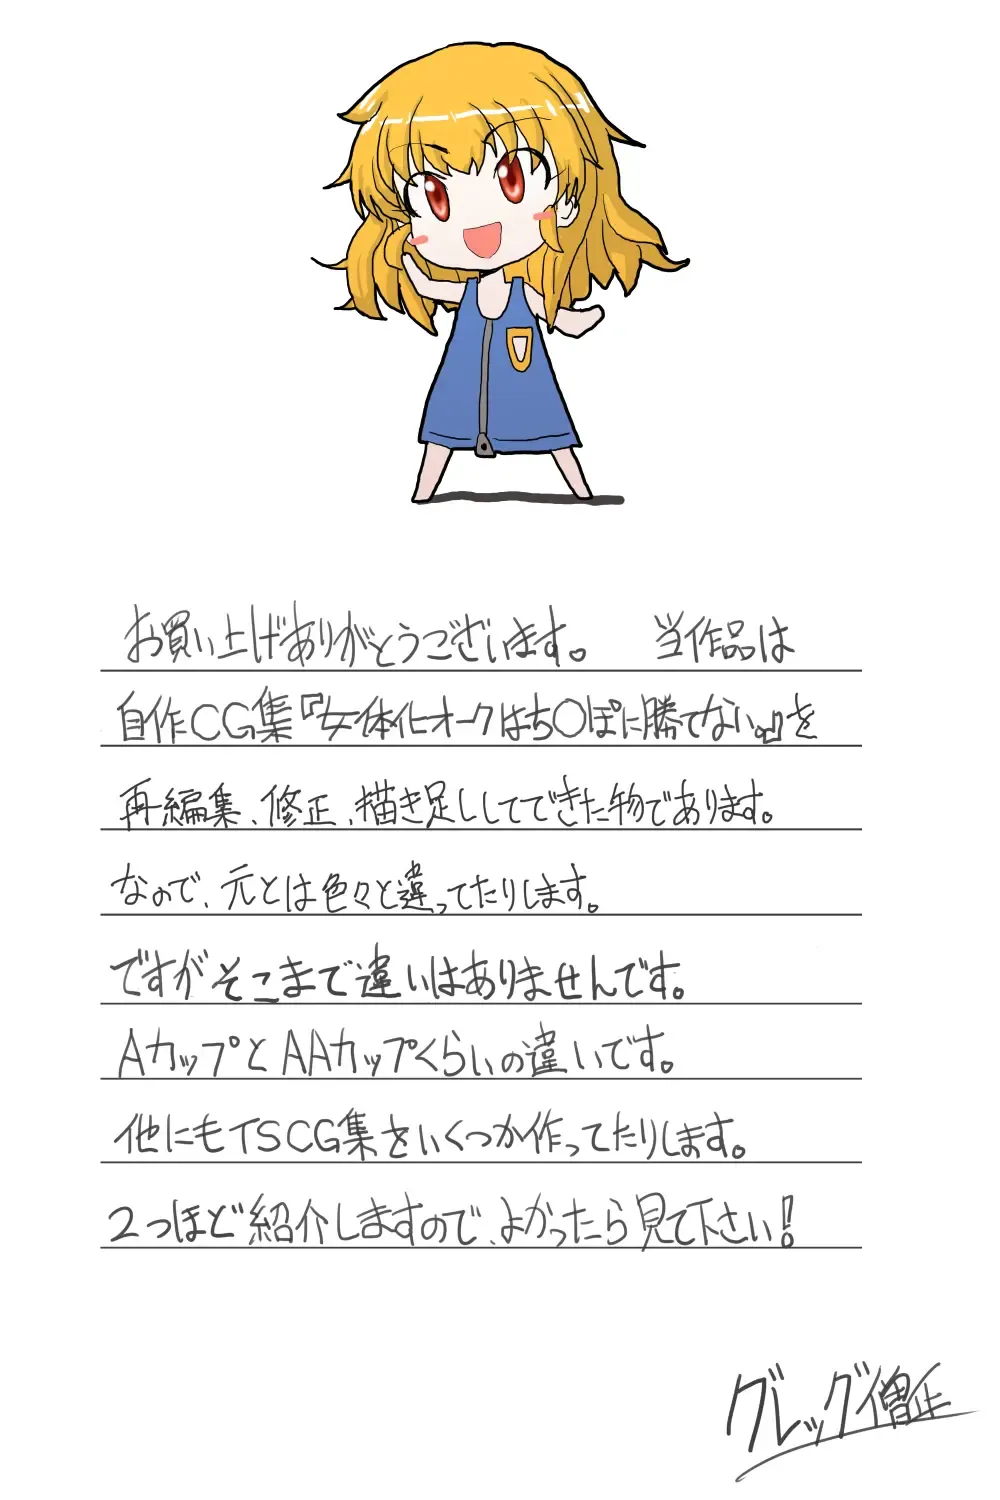 お買い上げありがとうございます。　当作品は
自作CG集『女体化オークはち○ぽに勝てない。』を
再編集、修正、描き足ししてできた物であります。
なので、元とは色々と違ってたりします。
ですがそこまで違いはありませんです。
AカップとAAカップくらいの違いです。
他にもTSCG集をいくつか作ってたりします。
2つほど紹介しますので、よかったら見て下さい!
グレッグ僧正